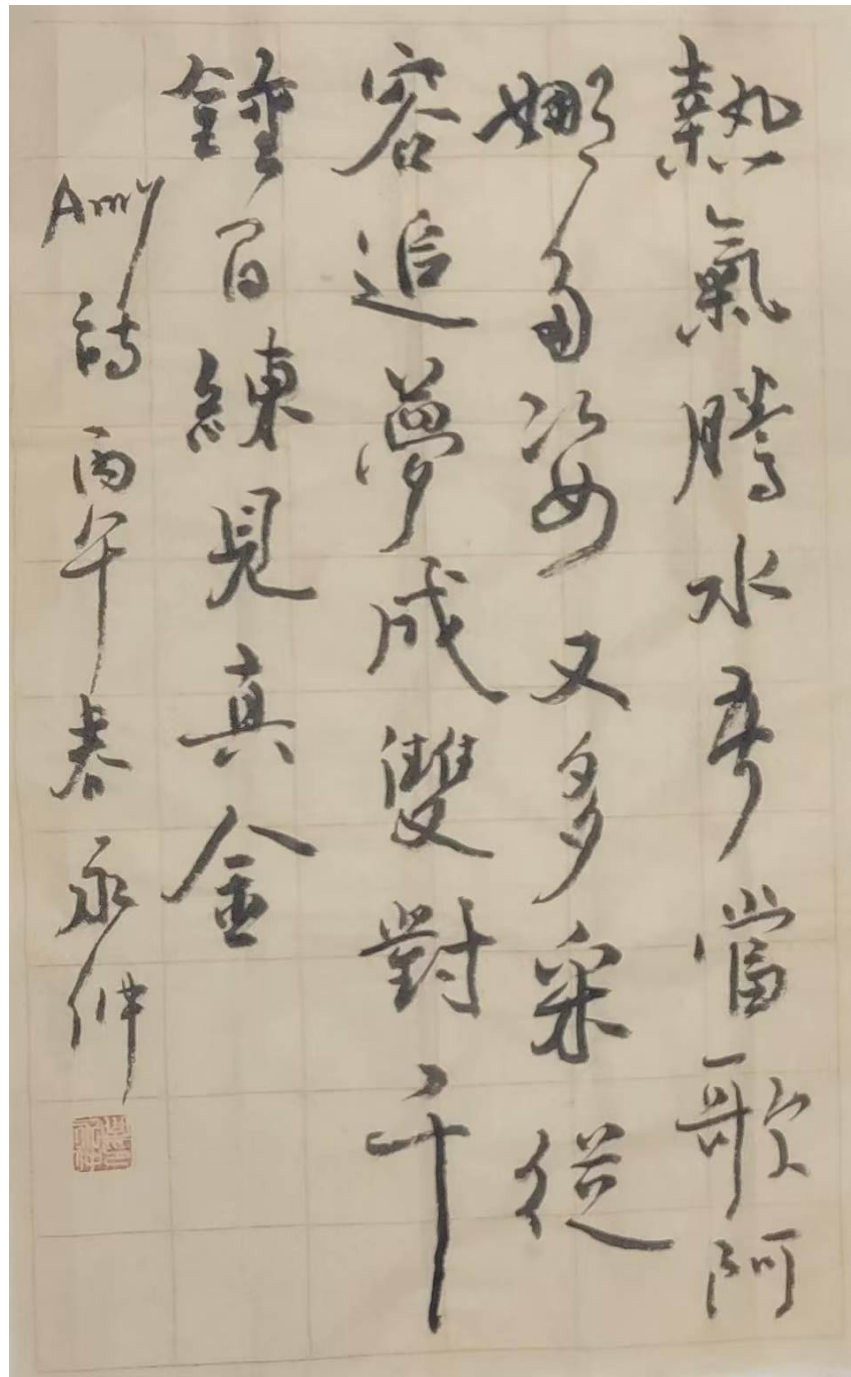 熱氣騰水當歌阿
娜姿又多采從
容追夢成雙對千
錘百練見真金
Amy詩丙午春永仲